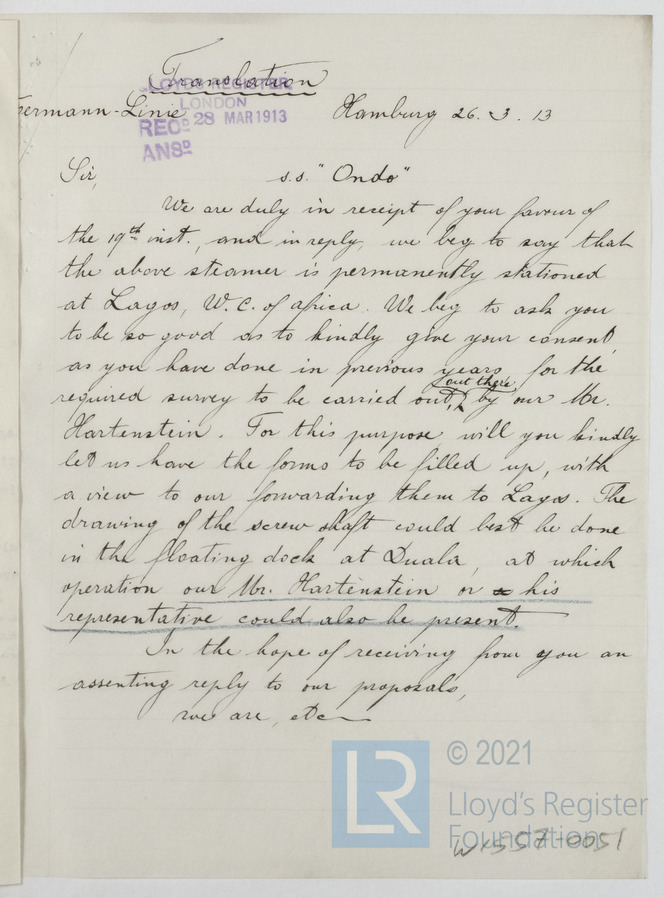 Translation
LLOYD'S REGISTER
LONDON
REC'D 28 MAR 1913
ANS'D
oermann-Linie
Hamburg 26. 3. 13
Sir,
s.s. "Ondo"
We are duly in receipt of your favour of
the 19th inst., and in reply, we beg to say that
the above steamer is permanently stationed
at Lagos, W.C. of Africa. We beg to ask you
to be so good as to kindly give your consent,
as you have done in previous years, for the
required survey to be carried out, out there, by our Mr.
Hartenstein. For this purpose will you kindly
let us have the forms to be filled up, with
a view to our forwarding them to Lagos. The
drawing of the screw shaft could best be done
in the floating dock at Duala, at which
operation our Mr. Hartenstein or his
representative could also be present.
In the hope of receiving from you an
assenting reply to our proposals,
we are, etc
LR
© 2021
Lloyd's Register
Foundation
W1557-0051